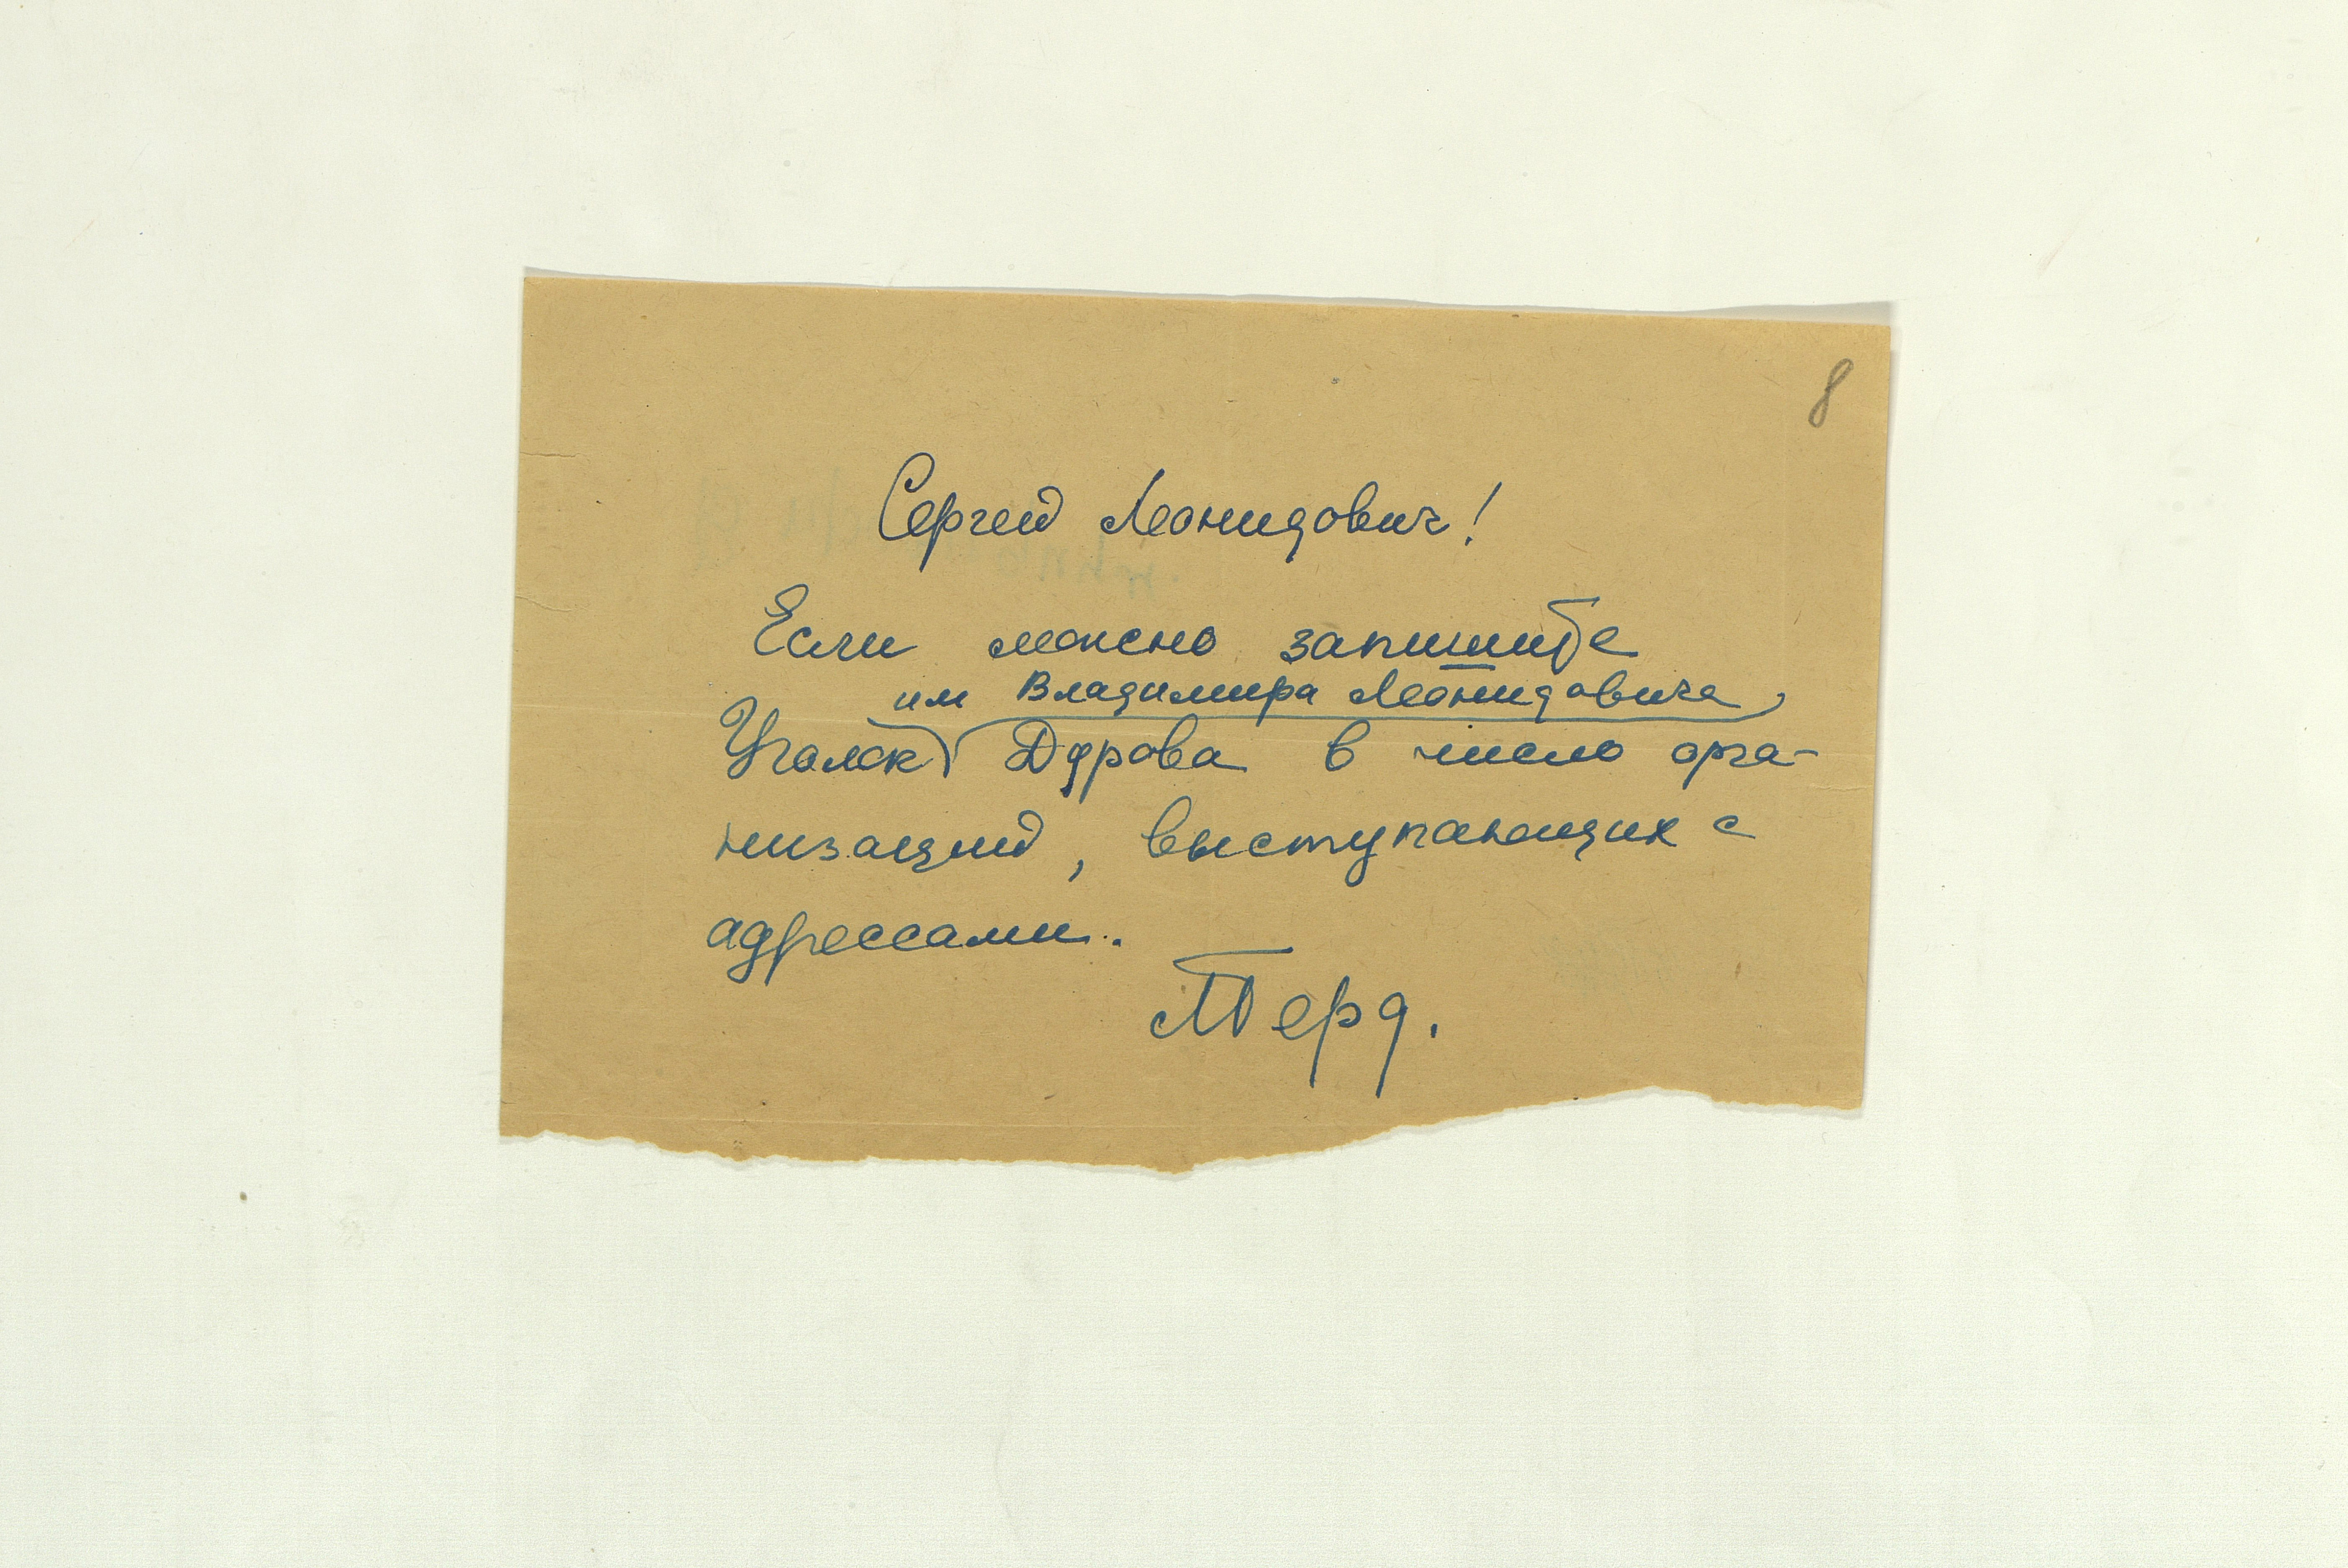 8
Сергей Леонидович!
Если можно запишите
им Владимира Леонидовича
Уголок Дурова в число орга-
низаций, выступающих с
адрессами.